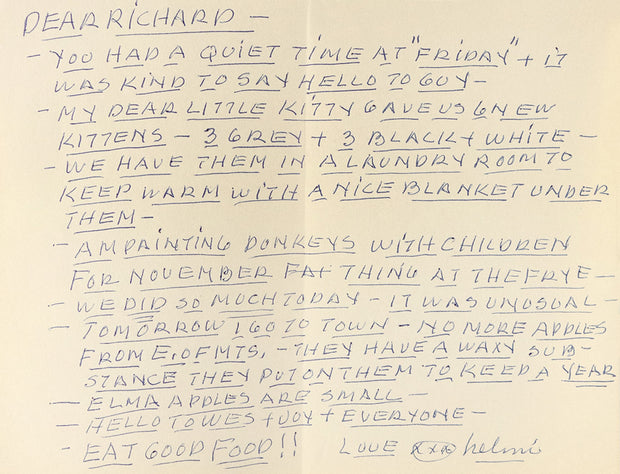 DEAR RICHARD —
— YOU HAD A QUIET TIME AT "FRIDAY" + IT
WAS KIND TO SAY HELLO TO GUY —
— MY DEAR LITTLE KITTY GAVE US 6 NEW
KITTENS — 3 GREY + 3 BLACK + WHITE —
— WE HAVE THEM IN A LAUNDRY ROOM TO
KEEP WARM WITH A NICE BLANKET UNDER
THEM —
— AM PAINTING DONKEYS WITH CHILDREN
FOR NOVEMBER FAT THING AT THE FRYE —
— WE DID SO MUCH TODAY — IT WAS UNUSUAL —
— TOMORROW I GO TO TOWN — NO MORE APPLES
FROM E. OF MTS. — THEY HAVE A WAXY SUB-
STANCE THEY PUT ON THEM TO KEEP A YEAR
— ELMA APPLES ARE SMALL —
— HELLO TO WES + JOY + EVERYONE —
— EAT GOOD FOOD!! LOVE xxx helmi